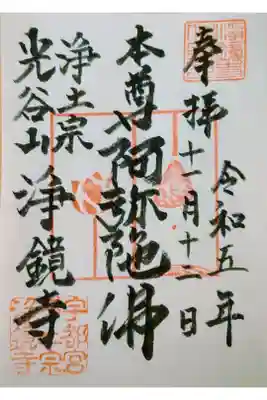 奉拝
令和五年
十一月十二日
本尊阿弥陀佛
浄土宗
光谷山
浄鏡寺